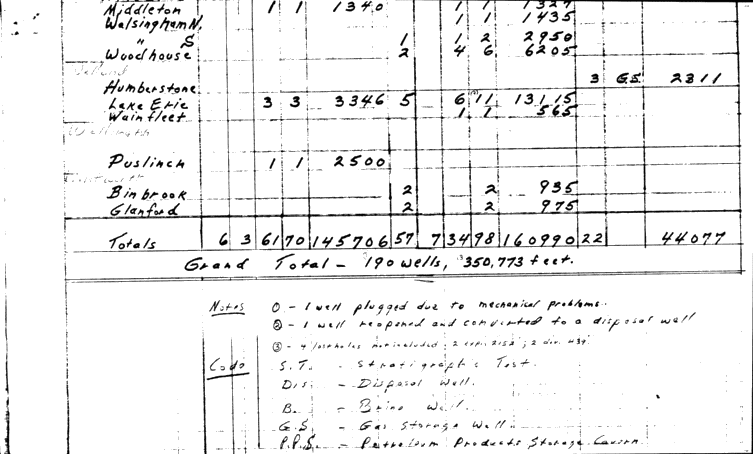 Middleton 1 1 1340 1 1 1327
Walsingham N. 1 1 1435
" S 1 1 2 2950
Woodhouse 2 4 6 6205
Welland
Humberstone 3 G.S. 2311
Lake Erie 3 3 3346 5 6 11 13115
Wainfleet 1 1 565
Wellington
Puslinch 1 1 2500
Wentworth
Binbrook 2 2 935
Glanford 2 2 975
Totals 6 3 61 70 145706 57 7 34 98 160990 22 44077
Grand Total - 190 wells, 350,773 feet.
Notes ① - 1 well plugged due to mechanical problems.
② - 1 well reopened and converted to a disposal well
③ - 4 not included; 2
Code S.T. - Stratigraphic Test.
Dis. - Disposal Well.
B. - Brine Well.
G.S. - Gas Storage Well.
P.P.S. - Petroleum Products Storage Cavern